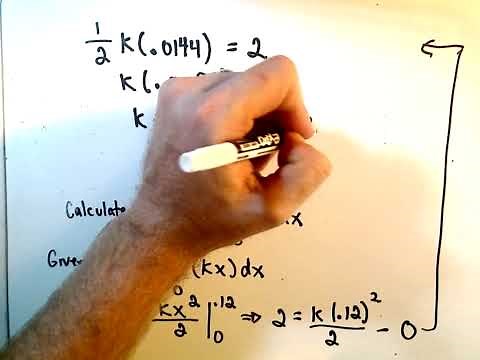 1/2 k(.0144) = 2
k(.
k
Calculate x
Given (kx)dx
0
kx²/2 |₀^.12 ⇒ 2 = k(.12)²/2 - 0